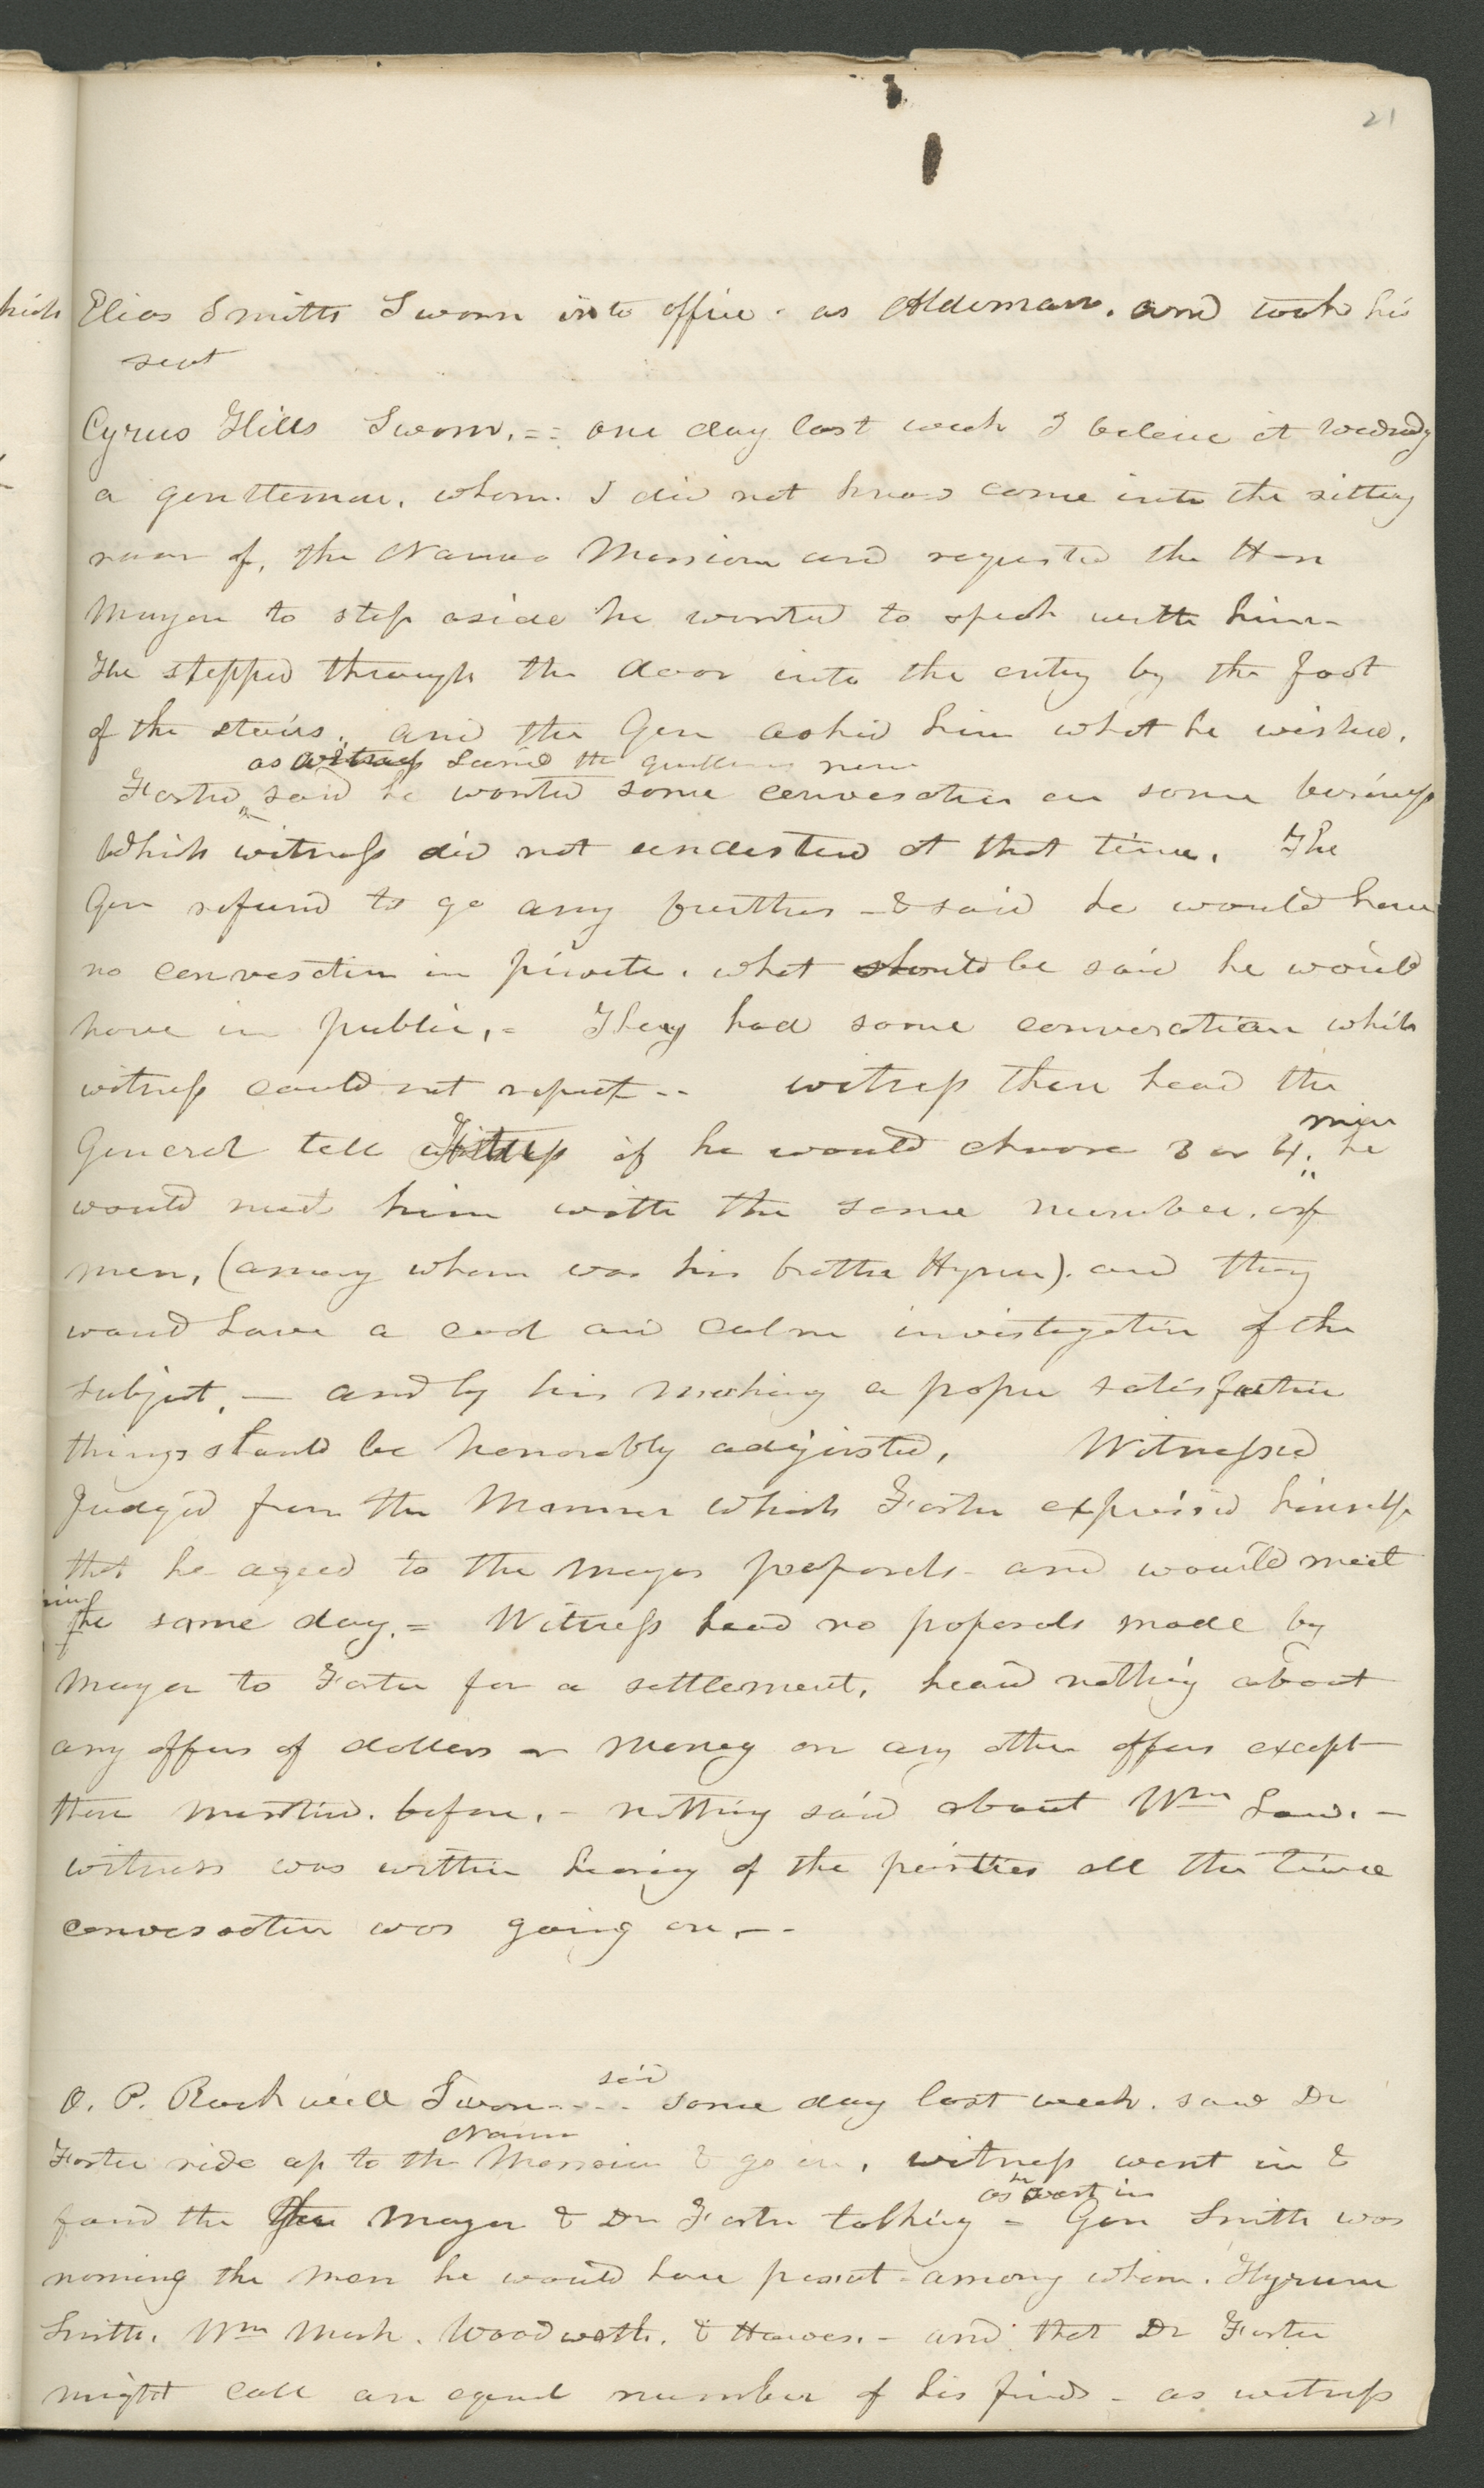 21
Elias Smith Sworn into office. as Alderman. and took his
seat
Cyrus Hills Sworn. == one day last week I beleive it Wednsdy
a gentleman. whom. I did not know come into the sitting
room of, the Nauvoo Mansion and requested the Hon
Mayor to step aside he wanted to speak with him-
He stepped through the door into the entry by the foot
of the stairs. and the Gen asked him what he wished.
as witness learned the gentlemans name
Foster, said he wanted some conversation on some business
Which witness did not understand at that time. The
Gen refused to go any further - & said he would have
no conversation in private. what should be said he would
have in public, = They had some conversation which
witness could not repeat -- witness then heard the
men
General tell if he would choose 3 or 4. he
would meet him with the same number. of
men, (among whom was his brother Hyrum). and they
would have a cool and calm investigation of the
subject. — and by his making a proper satisfaction
things should be honorably adjusted. Witnessed
Judged from the Manner which Foster expressed himself
that he agreed to the mayors proposals - and would meet
him
the same day. = Witness heard no proposals made by
Mayor to Foster for a settlement, heard nothing about
any offers of dollars or money or any other offers except
those mentined. before. - nothing said about Wm Law. —
witness was within hearing of the parties all the time
conversation was going on.--
said
O. P. Rockwell Sworn---- some day last week. saw Dr
Nauvoo
Foster ride up to the Mansion & go in, witness went in &
as he went in
found the Gen Mayor & Dr Foster talking = Gen Smith was
naming the men he would have present - among whom. Hyrum
Smith. Wm Mark. Woodworth. & Hawes. - and that Dr Foster
might call an equal number of his friends - as witness